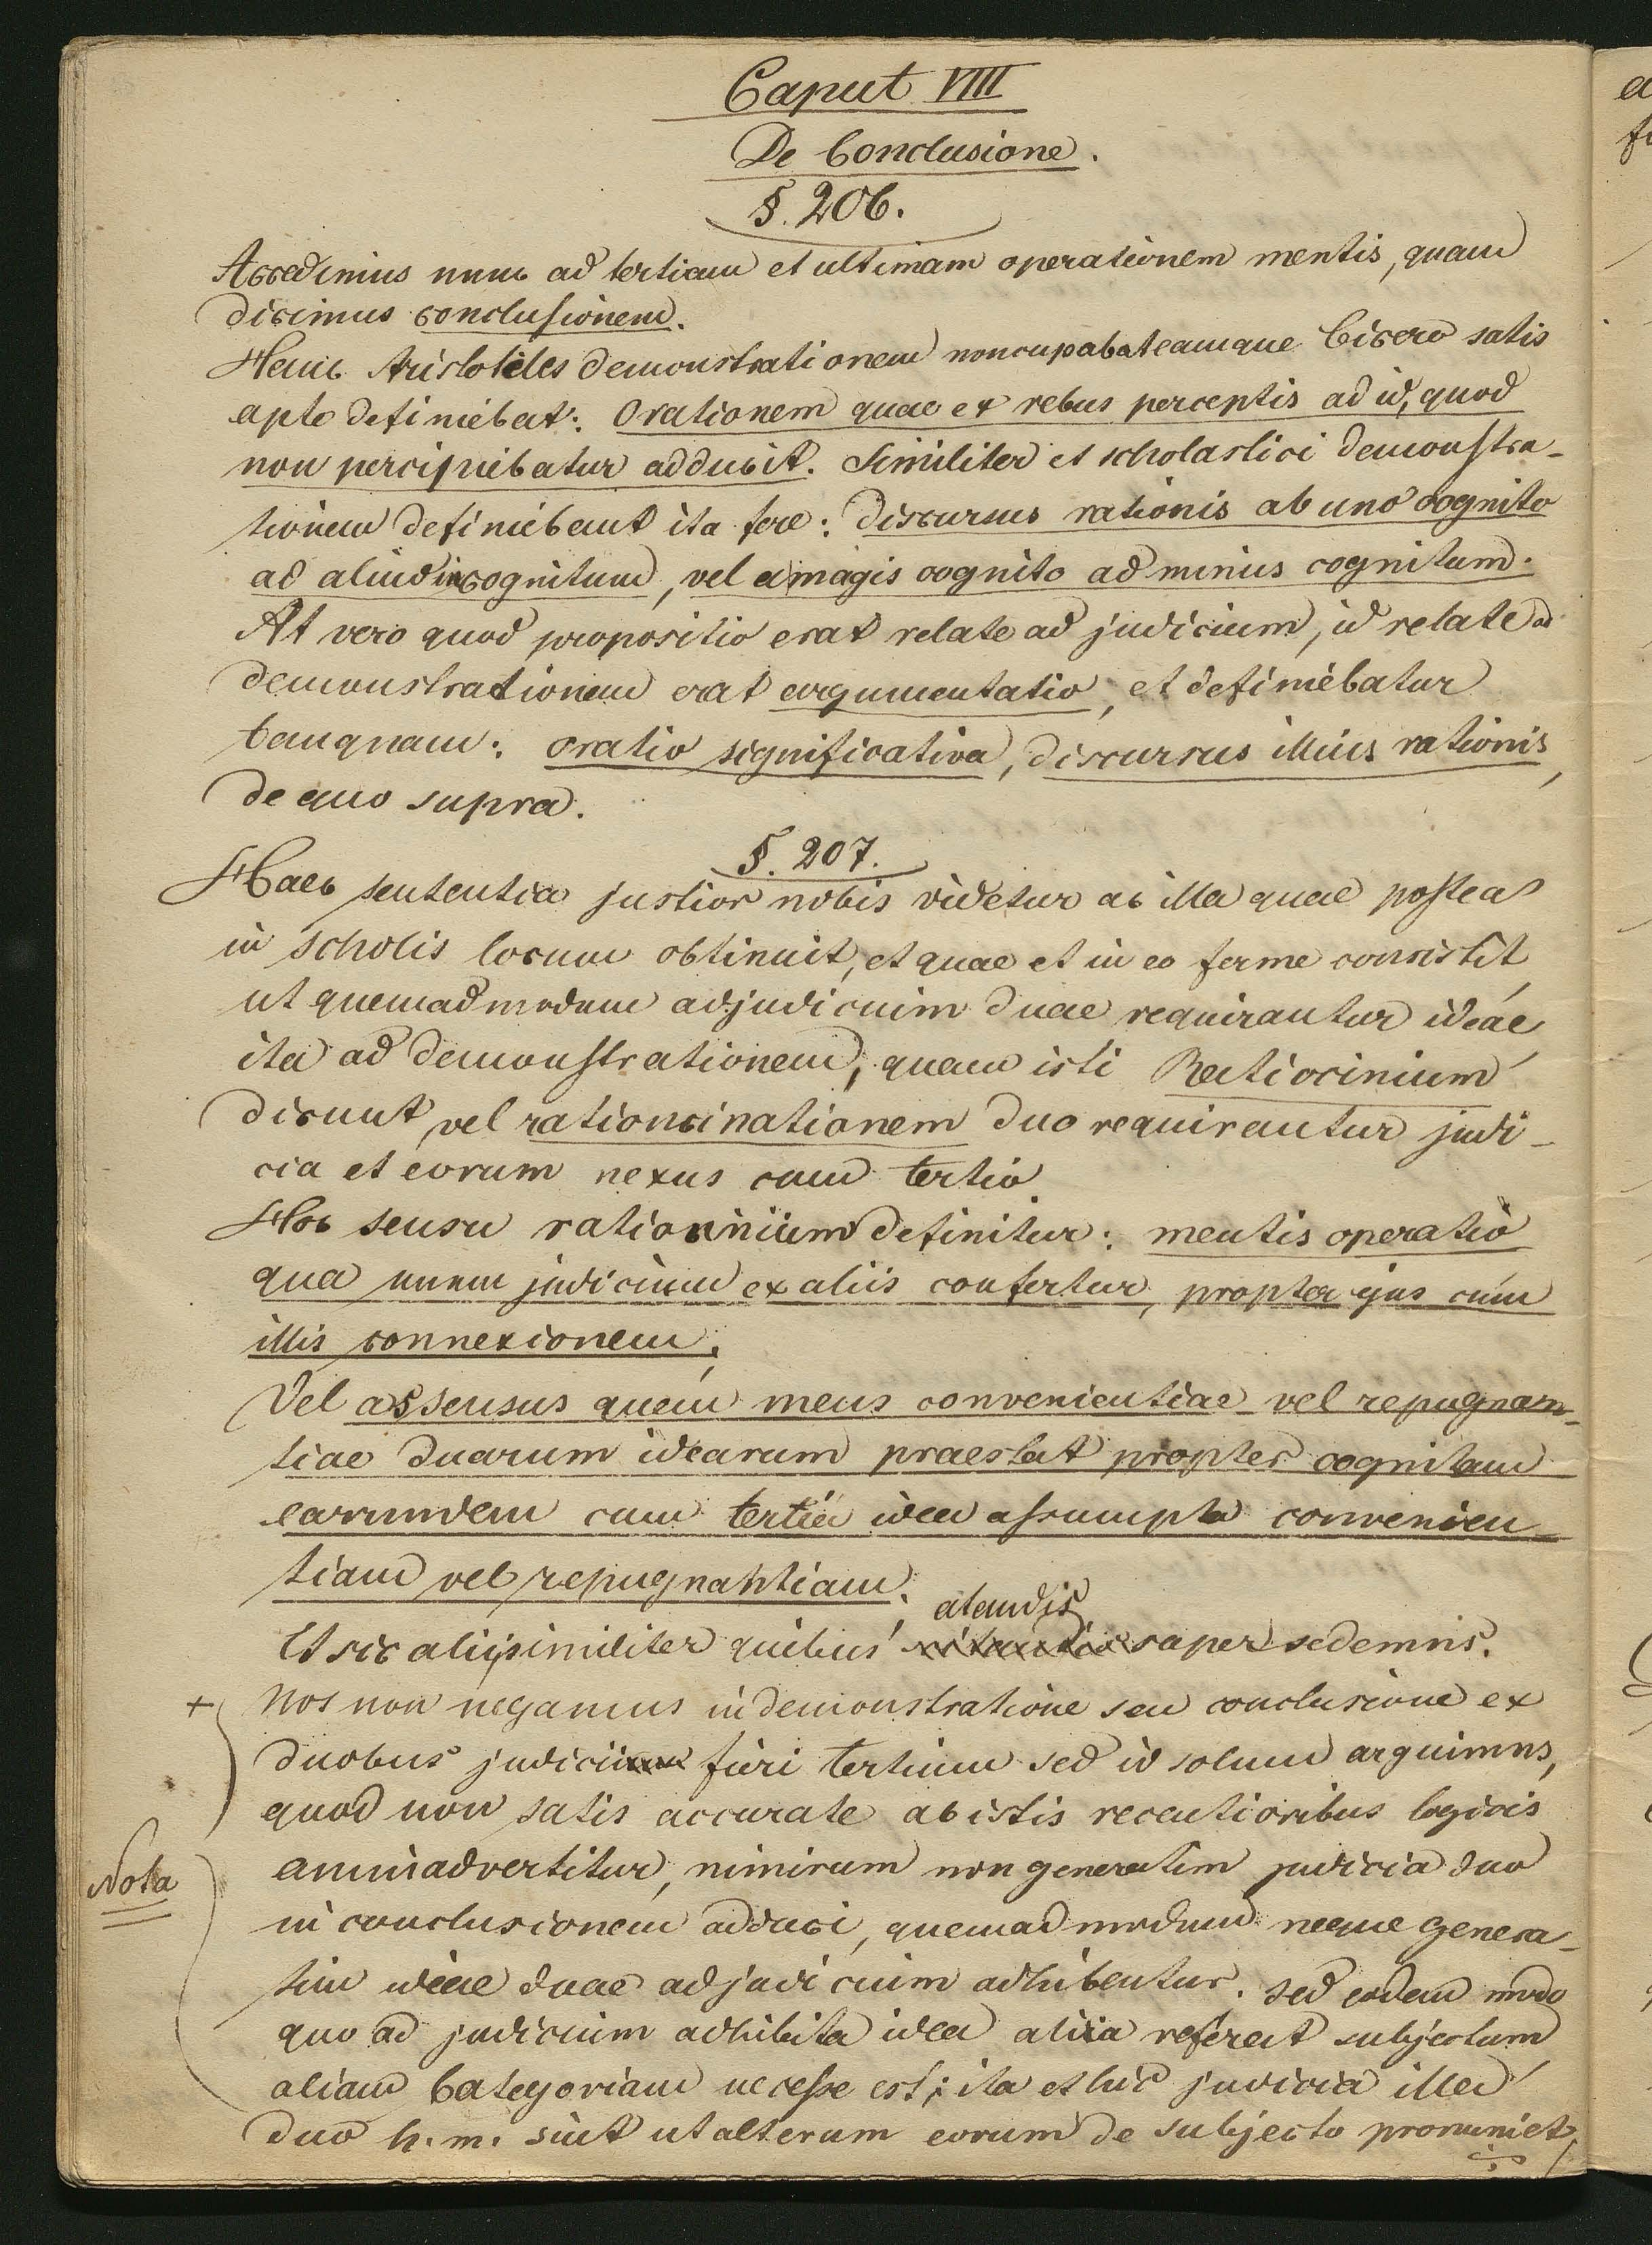 Caput VIIII
De Conclusione.
§. 206.
Accedimus nunc ad tertiam et ultimam operationem mentis, quam
dicimus conclusionem.
Hanc Aristoteles demonstrationem noncupabat eamque Cicero satis
apte definiebat: Orationem quae ex rebus perceptis ad id, quod
non percipiebatur adducit. Similiter et scholastici demonstra-
tionem definiebant ita fere: discursus rationis ab uno cognito
ad aliud incognitum, vel a magis cognito ad minus cognitum.
At vero quod propositio erat relate ad judicium, id relate ad
demonstrationem erat argumentatio, et definiebatur
tamquam: oratio significativa, discursus illius rationis,
de quo supra.
§. 207.
Haec sententia justior nobis videtur ac illa quae postea
in scholis locum obtinuit, et quae et in eo ferme consistit,
ut quemadmodum ad judicium duae requirantur ideae,
ita ad demonstrationem, quam isti Ratiocinium
dicunt vel ratiocinationem duo requirantur judi-
cia et eorum nexus cum tertio.
Hoc sensu ratiocinium definitur: mentis operatio
qua unum judicium ex aliis confertur, propter ejus cum
illis connexionem;
Vel assensus quem mens convenientiae vel repugnan-
tiae duarum idearum praestat propter cognitam
earumdem cum tertia idea assumpta convenien-
tiam vel repugnantiam;
atandis
Et sic alii similiter quibus supersedemus.
+ Nos non negamus in demonstratione seu conclusione ex
duobus judiciis fieri tertium sed id solum arguimus,
quod non satis accurate ab istis recentioribus logicis
animadvertitur, nimirum non generatim judicia duo
Nota
in conclusionem adduci, quemadmodum neque genera-
tim ideae duae ad judicium adhibentur. Sed eodem modo
quo ad judicium adhibita idea alia referat subjectum
aliam Categoriam necesse est; ita et hic judicia illa
duo h. m. sint ut alterum eorum de subjecto pronuniet